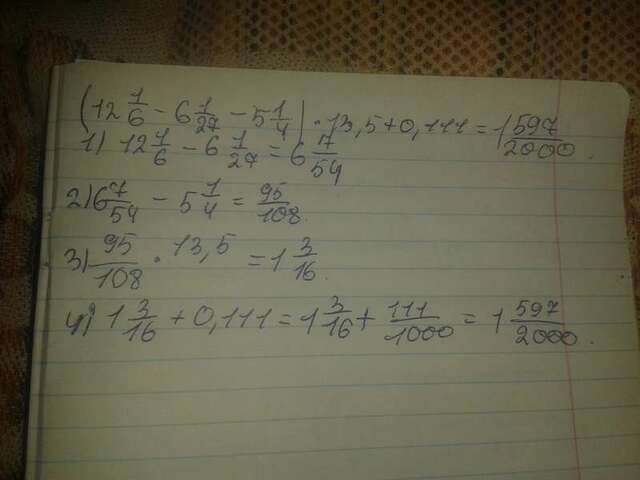 (12 1/6 - 6 1/27 - 5 1/4) · 13,5 + 0,111 = 1 597/2000.
1) 12 1/6 - 6 1/27 = 6 7/54
2) 6 7/54 - 5 1/4 = 95/108.
3) 95/108 · 13,5 = 1 3/16.
4) 1 3/16 + 0,111 = 1 3/16 + 111/1000 = 1 597/2000.